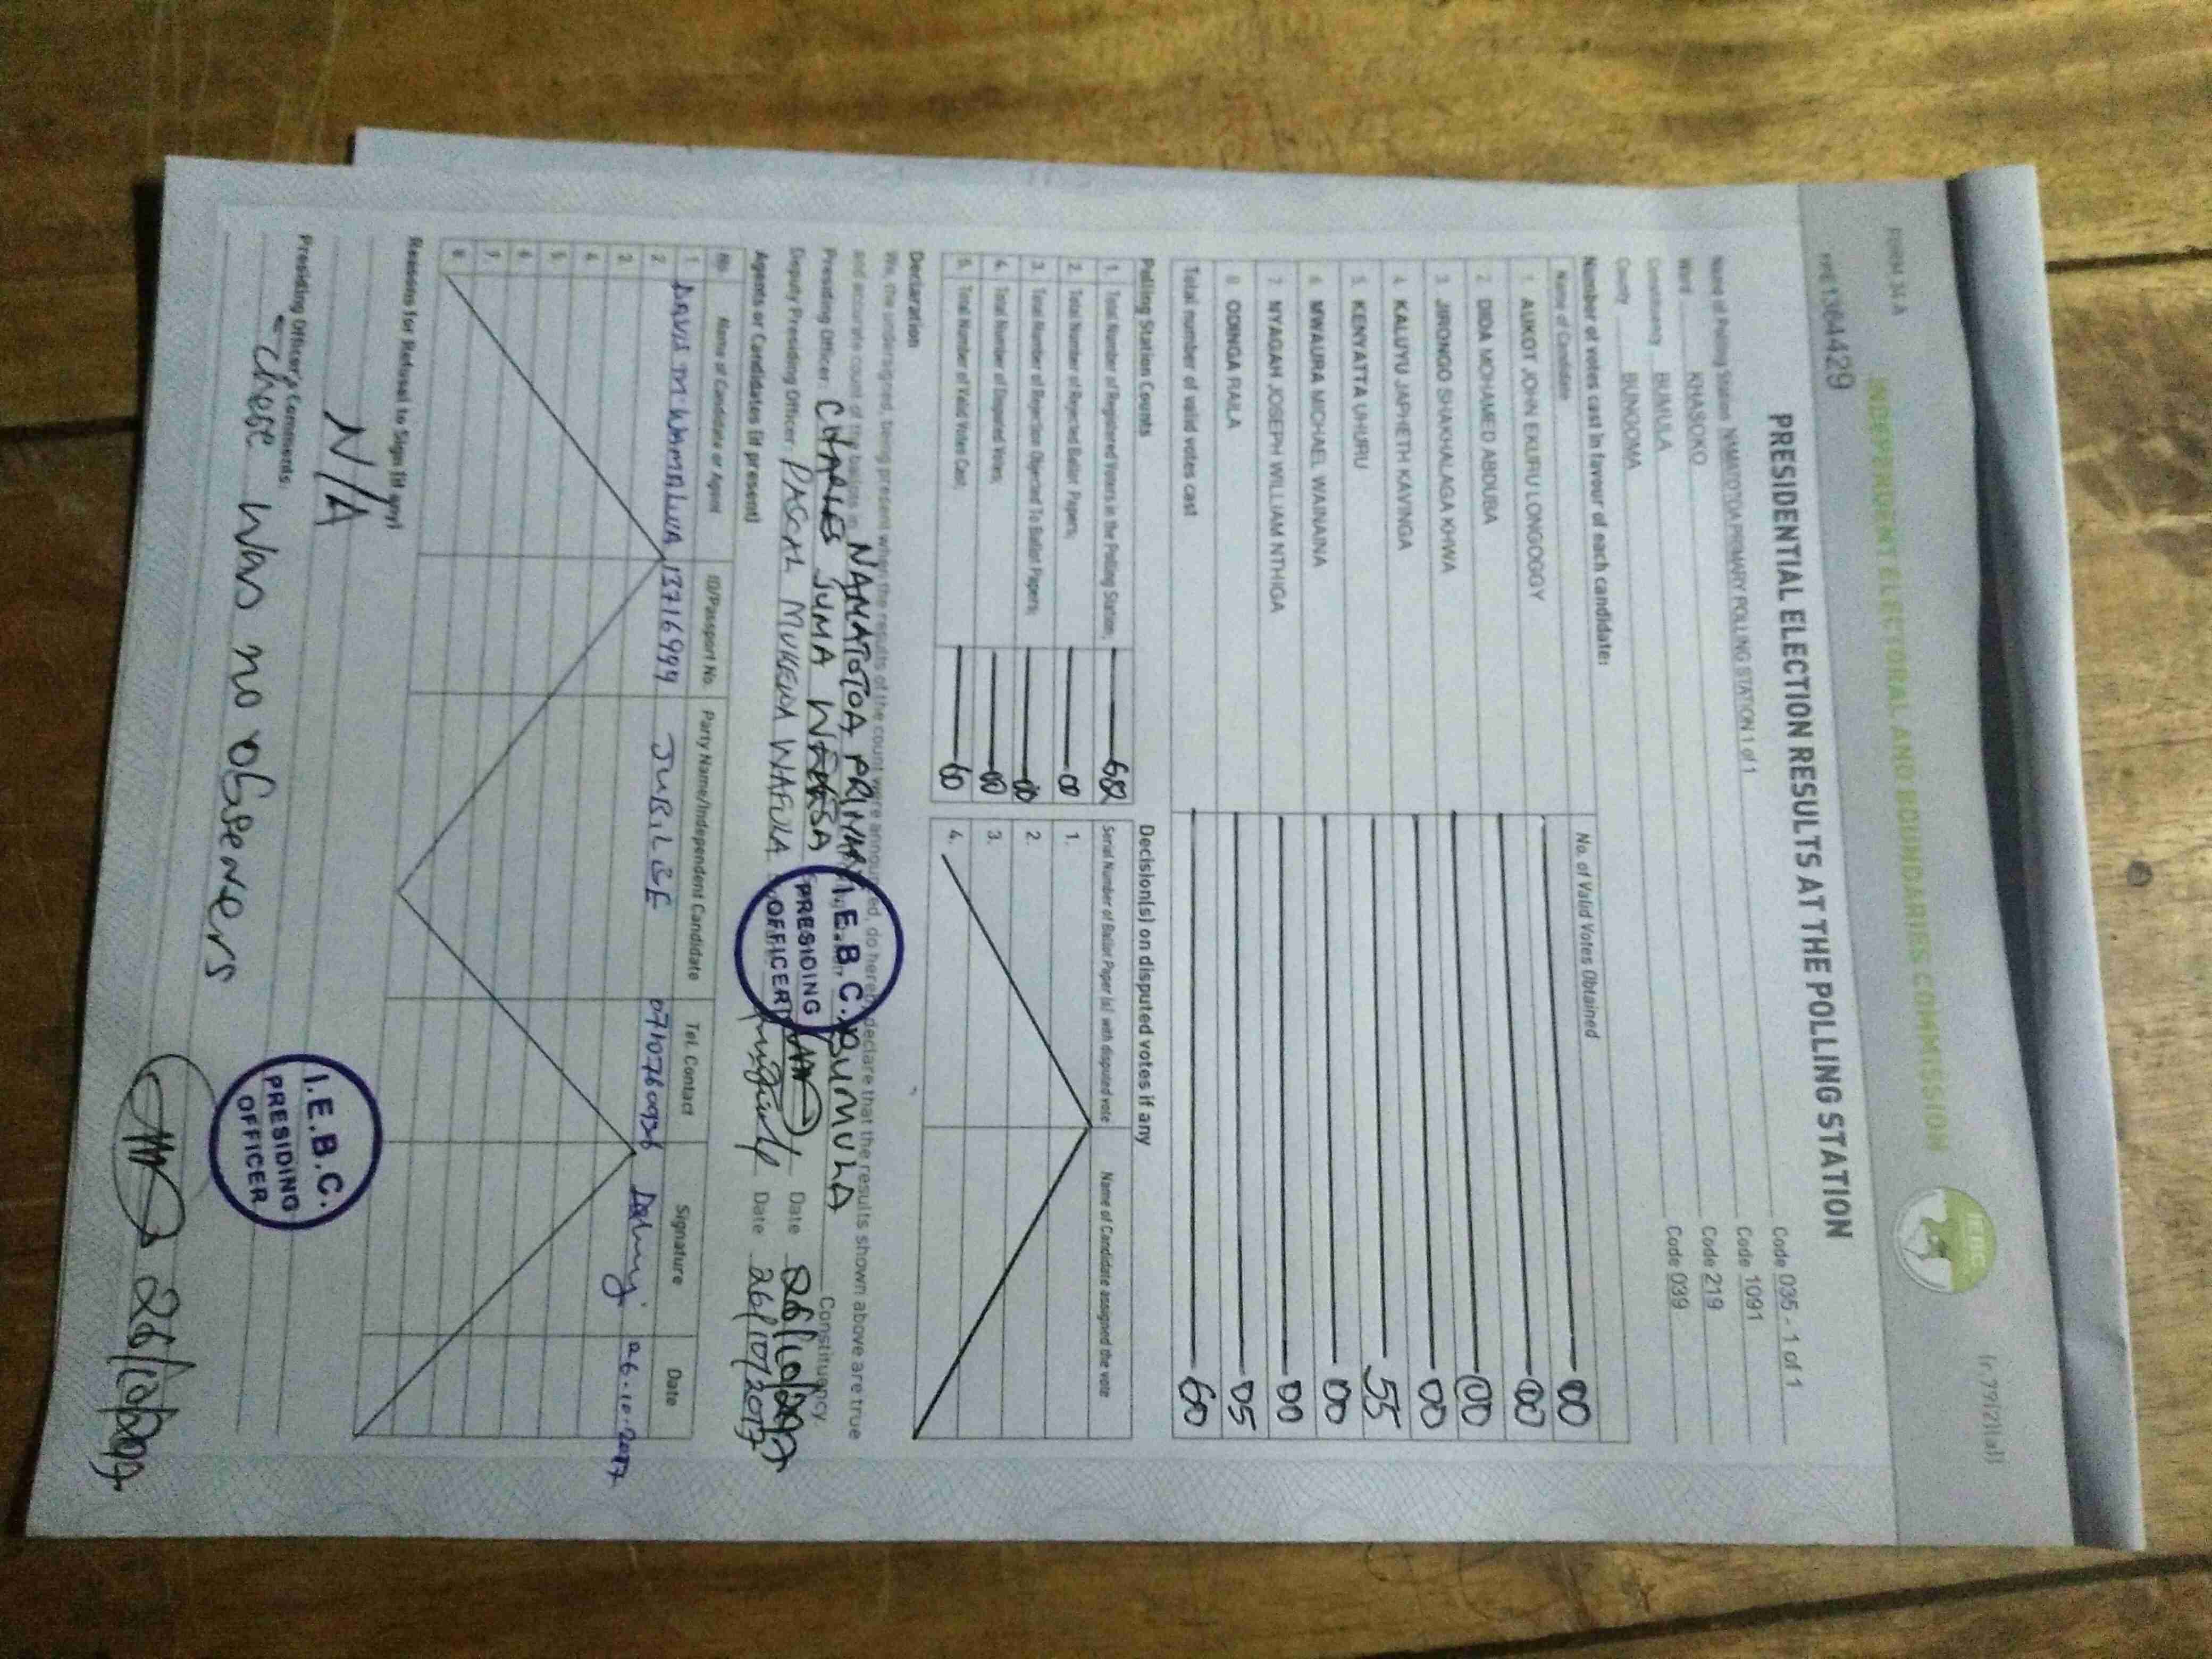 FORM 34 A
(r.79(2)(a))
INDEPENDENT ELECTORAL AND BOUNDARIES COMMISSION
IEBC
PRESIDENTIAL ELECTION RESULTS AT THE POLLING STATION
Name of Polling Station NAMATOTOA PRIMARY POLLING STATION 1 of 1 Code 035 - 1 of 1
Ward KHASOKO Code 1091
Constituency BUMULA Code 219
County BUNGOMA Code 039
Number of votes cast in favour of each candidate:
Name of Candidate No. of Valid Votes Obtained
1 AUKOT JOHN EKURU LONGOGGY 00
2 DIDA MOHAMED ABDUBA 00
3 JIRONGO SHAKHALAGA KHWA 00
4 KALUYU JAPHETH KAVINGA 00
5 KENYATTA UHURU 55
6 MWAURA MICHAEL WAINAINA 00
7 NYAGAH JOSEPH WILLIAM NTHIGA 00
8 ODINGA RAILA 05
Total number of valid votes cast 60
Polling Station Counts
1. Total Number of Registered Voters in the Polling Station;
2. Total Number of Rejected Ballot Papers; 00
3. Total Number of Rejection Objected To Ballot Papers; 00
4. Total Number of Disputed Votes; 00
5. Total Number of Valid Votes Cast; 60
Decision(s) on disputed votes if any
Serial Number of Ballot Paper (s) with disputed vote Name of Candidate assigned the vote
1.
2.
3.
4.
Declaration
We, the undersigned, being present when the results of the count were announced, do hereby declare that the results shown above are true
and accurate count of the ballots in NAMATOTOA PRIMARY BUMULA Constituency
Presiding Officer: CHARLES JUMA Date 26/10/2017
Deputy Presiding Officer: PASCAL MUKEWA WAFULA Date 26/10/2017
I.E.B.C.
PRESIDING
OFFICER
Agents or Candidates (if present)
No. Name of Candidate or Agent ID/Passport No. Party Name/Independent Candidate Tel. Contact Signature Date
1. DAVIS M WAMALWA 13716999 JUBILEE 0710760926 26.10.2017
2.
3.
4.
5.
6.
7.
8.
Reasons for Refusal to Sign (if any)
N/A
Presiding Officer's Comments:
There was no observers
I.E.B.C.
PRESIDING
OFFICER
26/10/2017